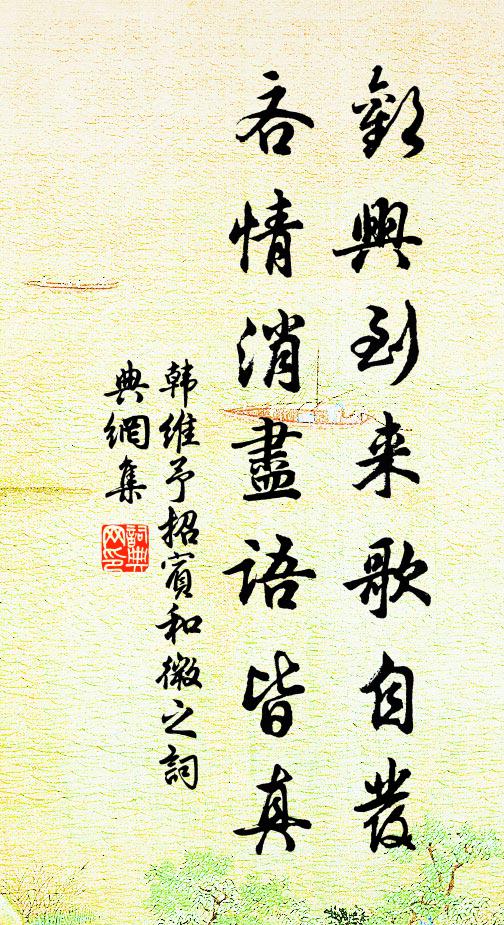 歡興到来歌自發
吝情消盡語皆真
韩維予招賓和微之詞
典網集
詞典
网印